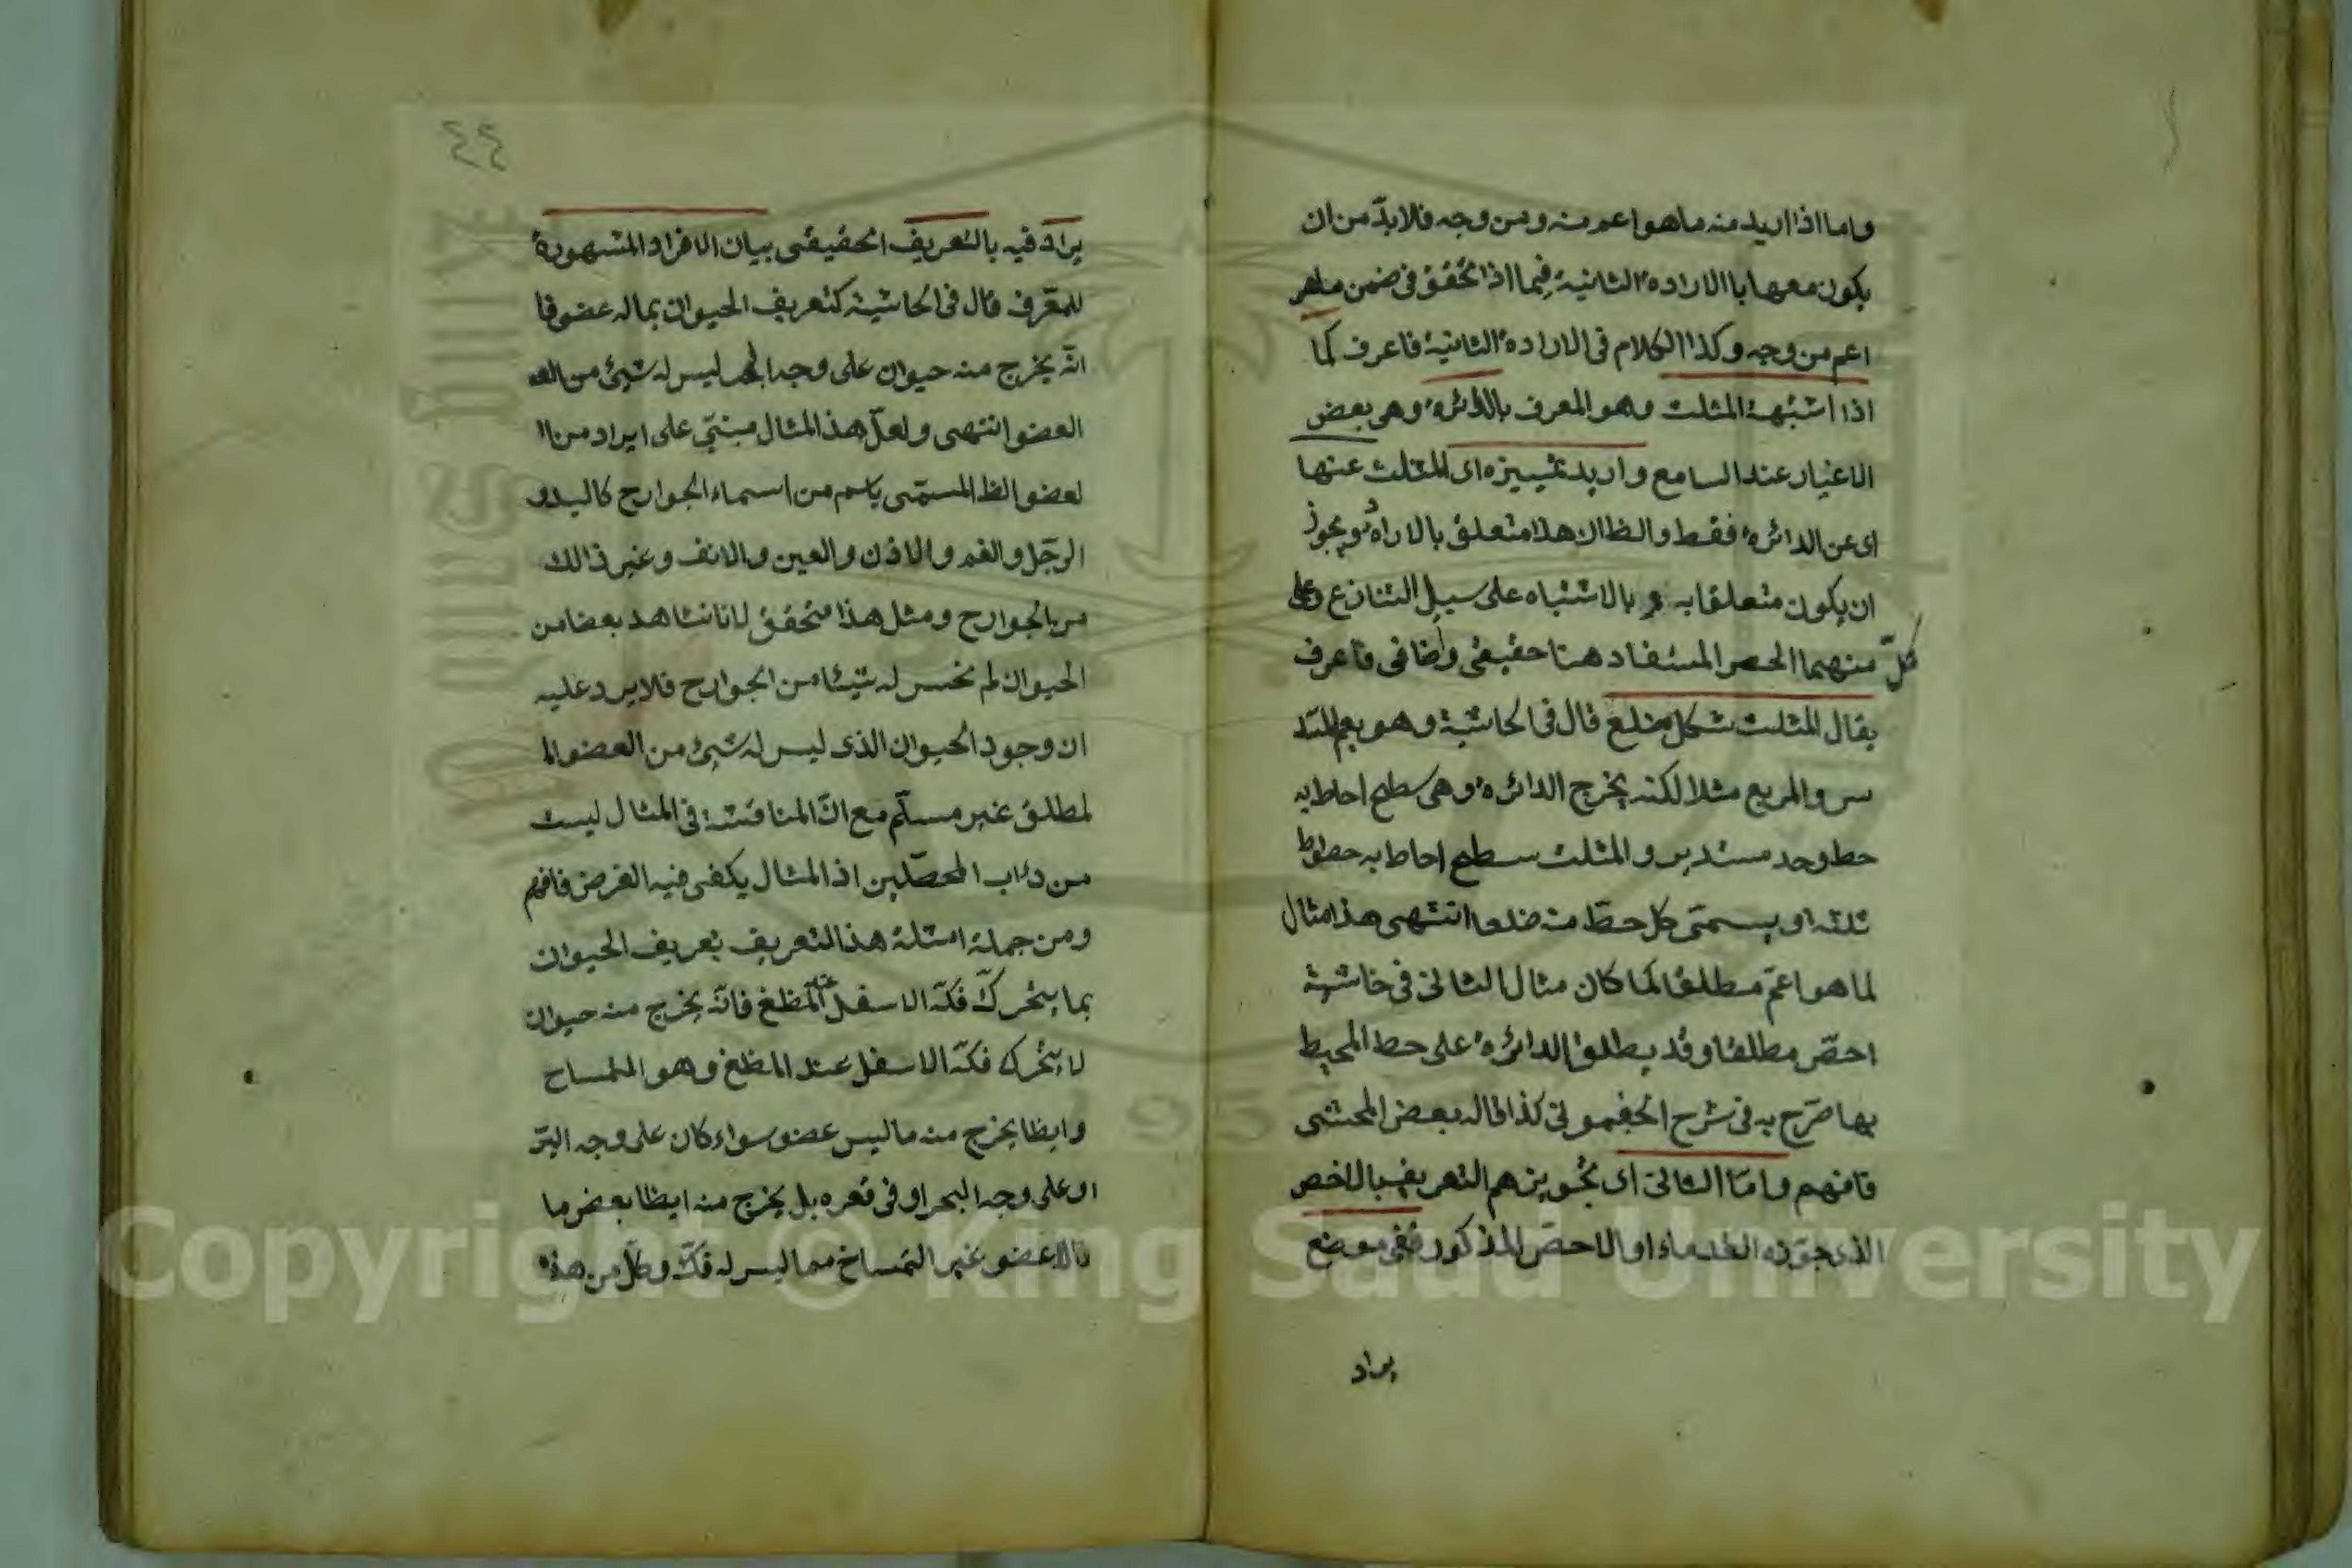 واما اذا اريد منه ما هو اعم منه ومن وجه فلا بدّ من ان
يكون معها با الاراده الثانية فيما اذا تحقق فى ضمن ماهو
اعم من وجه وكذا الكلام فى الاراده الثانية فاعرف كما
اذا اشبتهة المثلث وهو المعرف بالدائره وهى بعض
الاغيار عند السامع واريد تمييزه اى المثلث عنها
اى عن الدائره فقط والظ ان هذا متعلق بالاراده ويجوز
ان يكون متعلقا به و بالاشتباه على سبيل التنازع وعلى
كلّ منهما الحصر المستفاد هنا حقيقى واضافى فاعرف
يقال المثلث شكل مضلع قال فى الحاشية وهو يعم المسد
س والمربع مثلا لكنه يخرج الدائره وهى سطح احاط به
حط وحد مستدير والمثلث سطح احاط به حطوط
ثلثه او يسمّى كل حطّ منه ضلعا انتهى هذا مثال
لما هو اعمّ مطلقا كما كان مثال الثانى فى خاشية
احصّ مطلقا وقد يطلق الدائره على حط المحيط
بها صرّح به فى شرح الجغمونى كذا قاله بعض المحشى
فافهم وامّا الثانى اى تجويزهم التعريف بالاخص
الذى جوّزه القدماء او الاحصّ المذكور ففى موضع
يراد
٤٤
يراد فيه بالتعريف الحقيقى بيان الافراد المشهورة
للمعّرف قال فى الحاشية كتعريف الحيوان بماله عضو فا
انّه يخرج منه حيوان على وجه البحر ليس له شيئ من العـ
العضو انتهى ولعلّ هذا المثال مبنىّ على ايراد من ا
لعضو الظ المسمّى باسم من اسماء الجوارح كاليد و
الرجّل والفم والاذن والعين والانف وغير ذالك
من الجوارح ومثل هذا متحقق لانا نشاهد بعضا من
الحيوان لم نحس له شيئا من الجوارح فلا يرد عليه
ان وجود الحيوان الذى ليس له شيئ من العضو الا
لمطلق غير مسلّم مع انّ المناقشة فى المثال ليست
من دئاب المحصّلين اذ المثال يكفى فيه الفرض فافهم
ومن جملة امثلة هذا التعريف تعريف الحيوان
بما يتحركّ فكّه الاسفل عند المظغ فانّه يخرج منه حيوان
لا يتحرك فكّه الاسفل عند المظغ وهو الملساح
وايظا يخرج منه ما ليس عضو سواء كان على وجه البرّ
او على وجه البحر او فى قعره بل يخرج منه ايظا بعض ما
عضو غير التمساخ مما ليس له فكّ وكلّ من هذه
Copyright © King Saud University